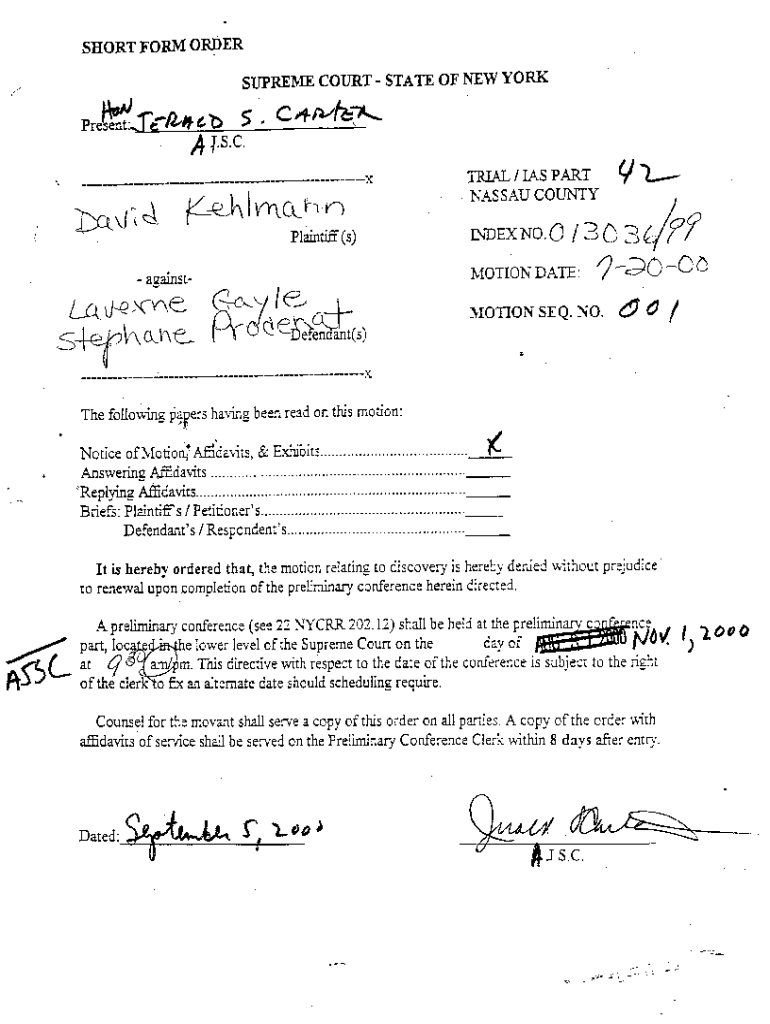 SHORT FORM ORDER
SUPREME COURT - STATE OF NEW YORK
Present: HON JERALD S. CARTER
A J.S.C.
x
TRIAL / IAS PART 42
NASSAU COUNTY
David Kehlmann
Plaintiff (s)
INDEX NO. 013036/99
- against-
MOTION DATE: 7-20-00
Laverne Gayle
MOTION SEQ. NO. 001
Stephane Prodenat
Defendant(s)
x
The following papers having been read on this motion:
Notice of Motion, Affidavits, & Exhibits.................................... X
Answering Affidavits ................................................................
Replying Affidavits...................................................................
Briefs: Plaintiff's / Petitioner's...................................................
Defendant's / Respondent's...........................................
It is hereby ordered that, the motion relating to discovery is hereby denied without prejudice
to renewal upon completion of the preliminary conference herein directed.
A preliminary conference (see 22 NYCRR 202.12) shall be held at the preliminary conference
part, located in the lower level of the Supreme Court on the day of NOV. 1, 2000
at 9:30 am/pm. This directive with respect to the date of the conference is subject to the right
AJSC
of the clerk to fix an alternate date should scheduling require.
Counsel for the movant shall serve a copy of this order on all parties. A copy of the order with
affidavits of service shall be served on the Preliminary Conference Clerk within 8 days after entry.
Dated: September 5, 2000
A J.S.C.